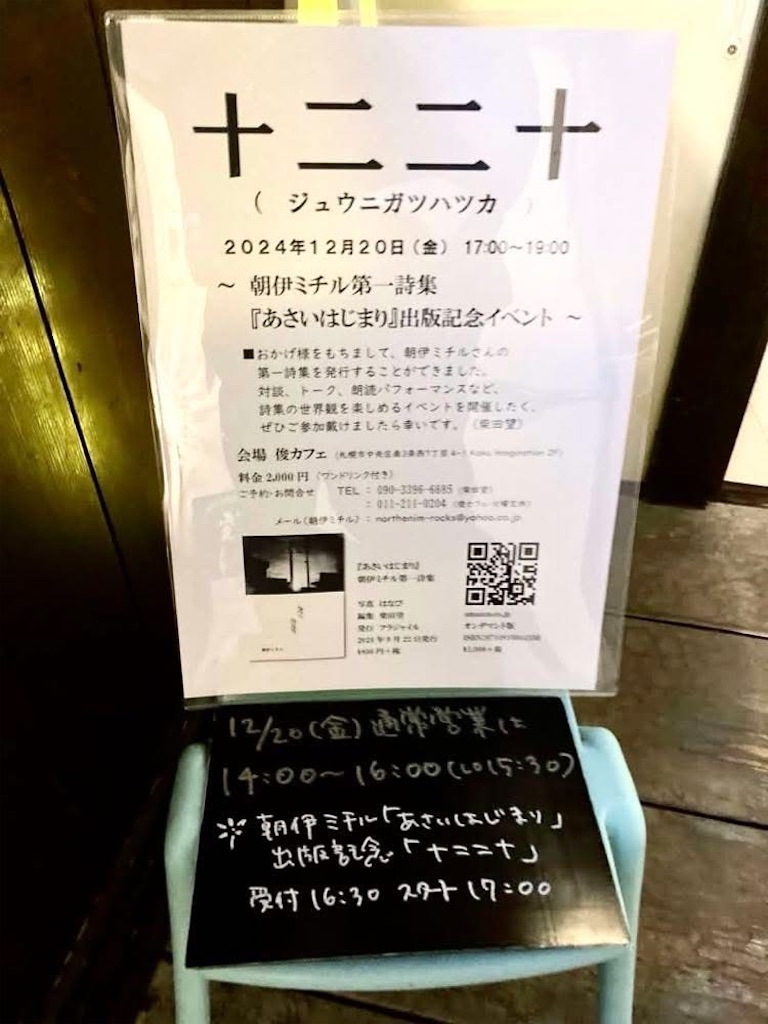 十二二十
( ジュウニガツハツカ )
2024年12月20日(金) 17:00~19:00
~ 朝伊ミチル第一詩集
『あさいはじまり』出版記念イベント ~
■おかげ様をもちまして、朝伊ミチルさんの
第一詩集を発行することができました。
対談、トーク、朗読パフォーマンスなど、
詩集の世界観を楽しめるイベントを開催したく、
ぜひご参加戴けましたら幸いです。(柴田望)
会場 俊カフェ (札幌市中央区南3条西7丁目4-1 Kaku imagination 2F)
料金 2,000円 (ワンドリンク付き)
ご予約・お問合せ TEL : 090-3396-6685 (柴田望)
: 011-211-0204
メール(朝伊ミチル) : northenim-rocks@yahoo.co.jp
『あさいはじまり』
朝伊ミチル第一詩集
写真 はなび
編集 柴田望
発行 フラジャイル
オンデマンド版
12/20(金)通常営業は
14:00~16:00(LO15:30)
※朝伊ミチル「あさいはじまり」
出版記念「十二二十」
受付16:30 スタート17:00